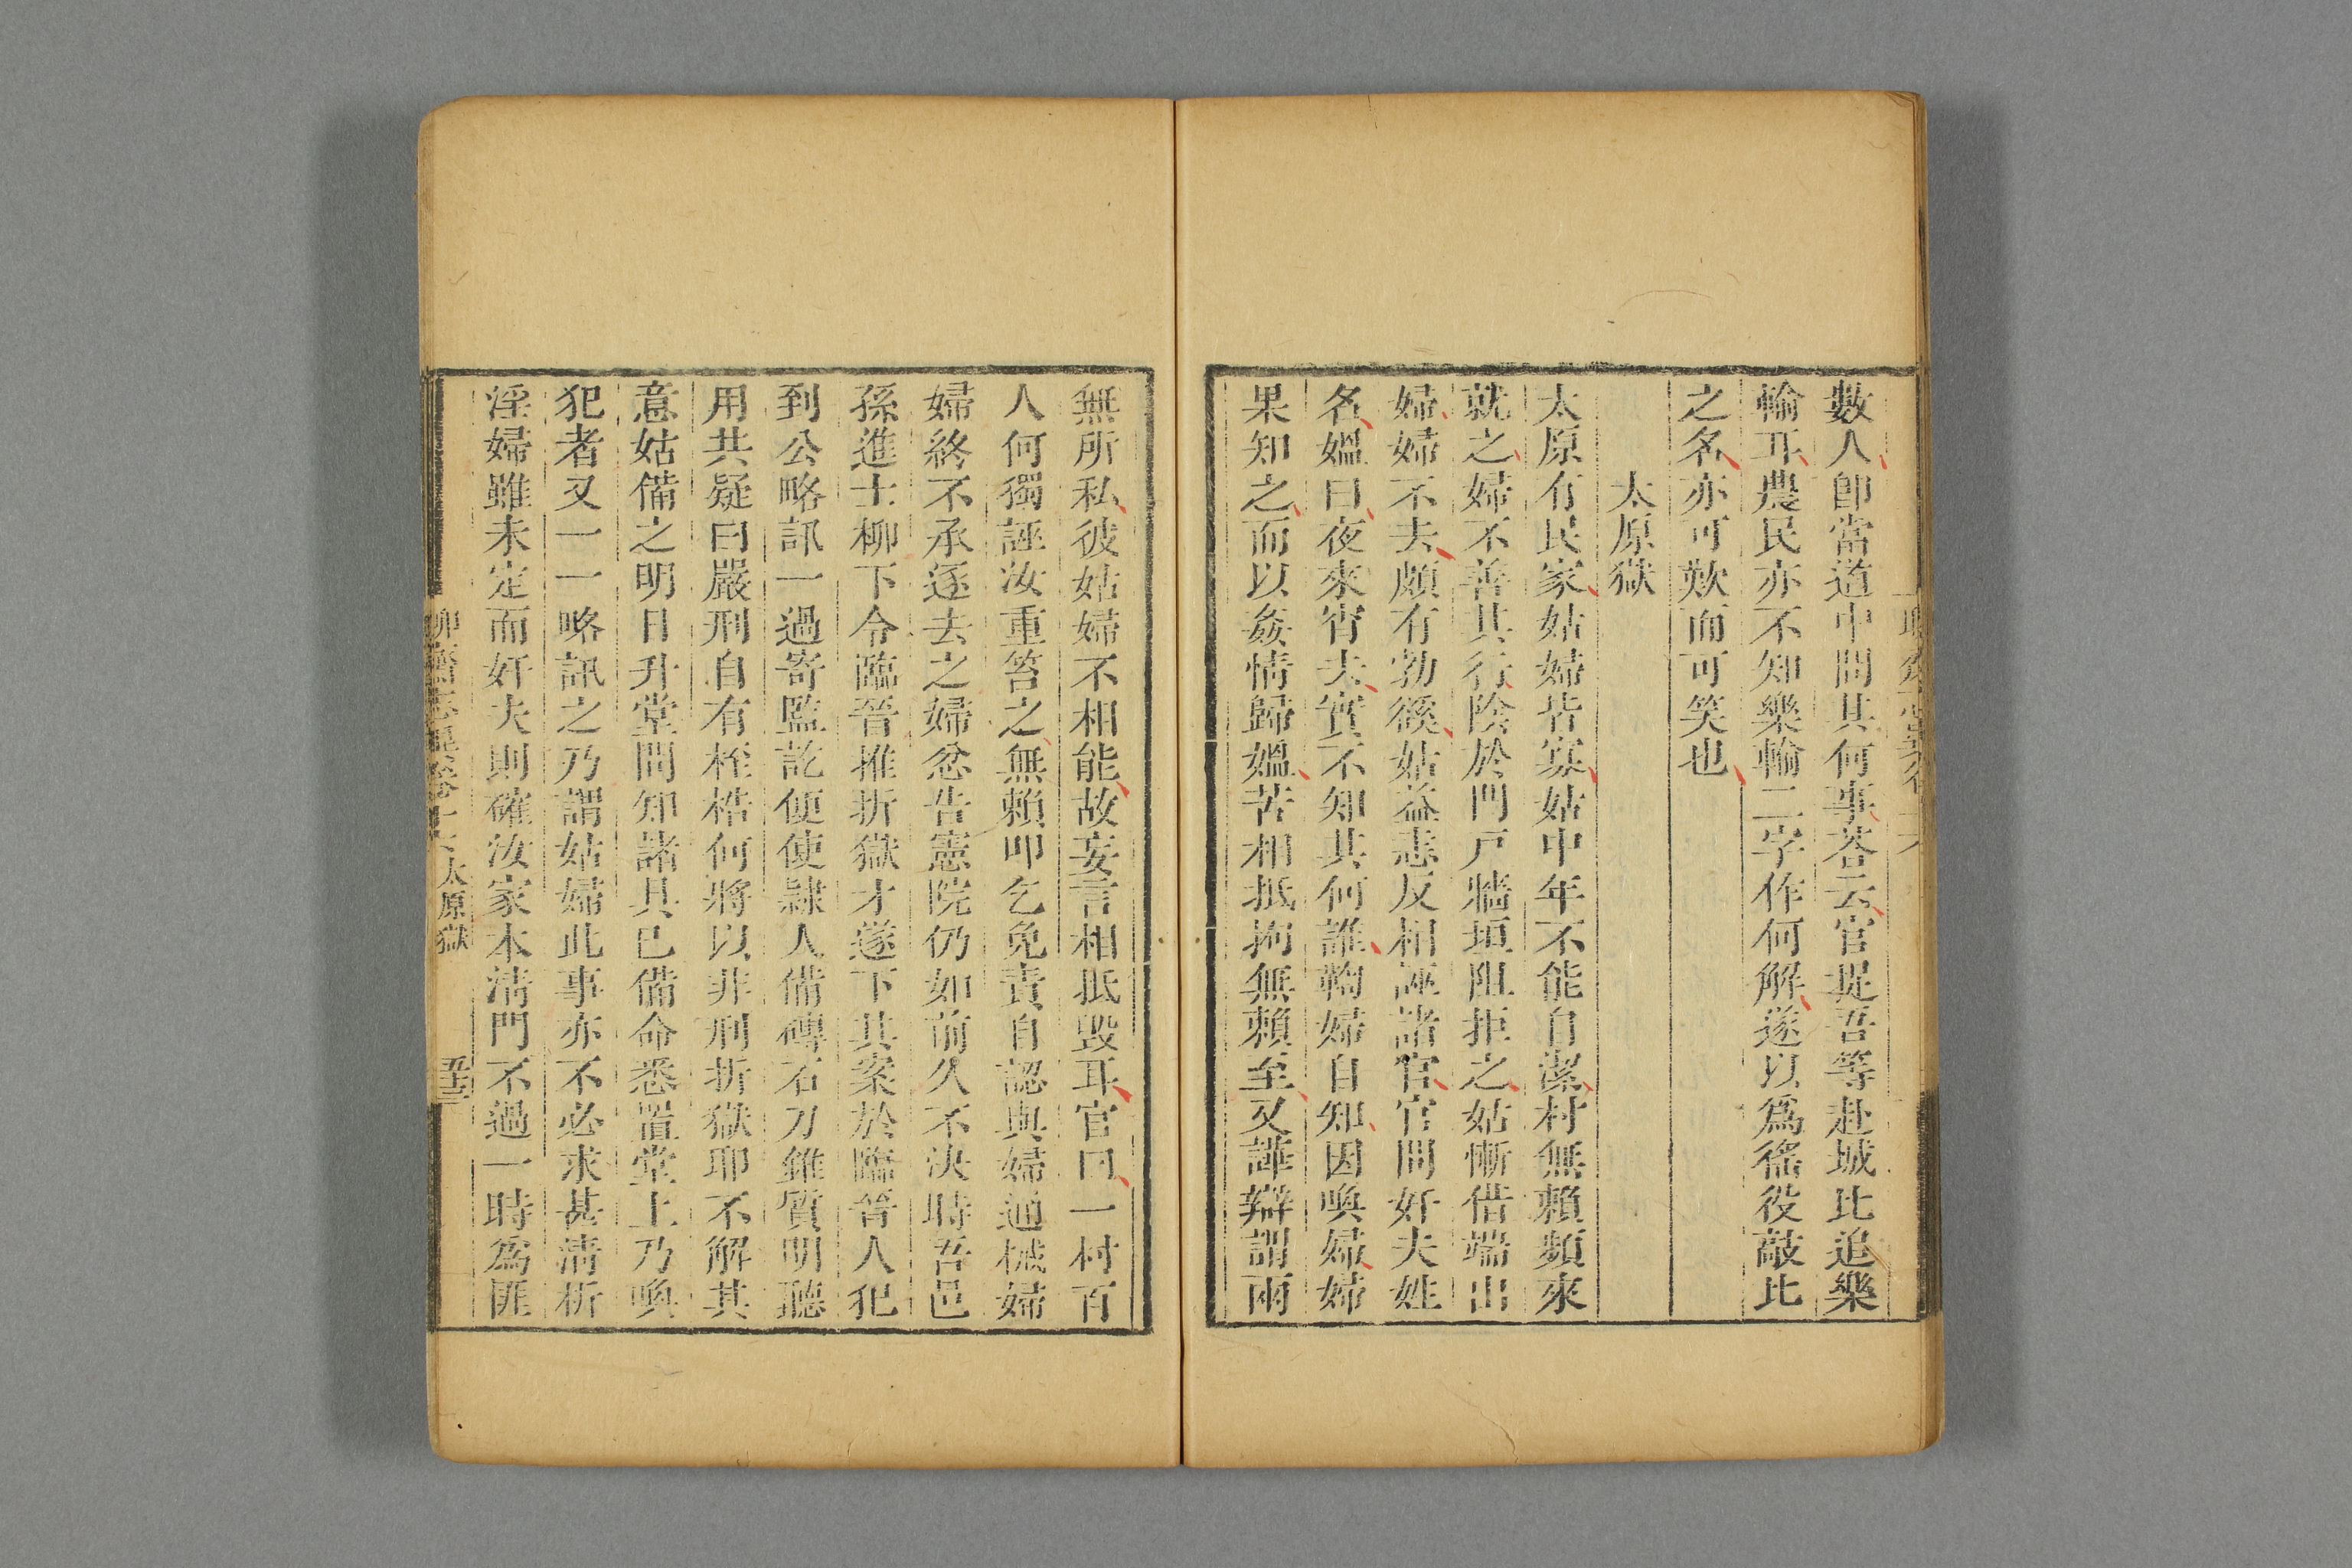 數人卽當道中問其何事荅云官捉吾等赴城比追樂
輸耳農民亦不知樂輸二字作何解遂以爲徭役敲比
之名亦可歎而可笑也
太原獄
太原有民家姑婦皆寡姑中年不能自潔村無賴頻來
就之婦不善其行陰於門戸牆垣阻拒之姑慚借端出
婦婦不去頗有勃谿姑益恚反相誣諸官官問奸夫姓
名媼曰夜來宵去實不知其何誰鞫婦自知因喚婦婦
果知之而以姦情歸媼苦相抵拘無賴至又譁辯謂兩
無所私彼姑婦不相能故妄言相抵毀耳官曰一村百
人何獨誣汝重笞之無賴叩乞免責自認與婦通械婦
婦終不承逐去之婦忿告憲院仍如前久不決時吾邑
孫進士柳下令臨晉推折獄才遂下其案於臨晉人犯
到公略訊一過寄監訖便使隸人備磚石刀錐質明聽
用共疑曰嚴刑自有桎梏何將以非刑折獄耶不解其
意姑備之明日升堂問知諸具已備命悉置堂上乃喚
犯者又一一略訊之乃謂姑婦此事亦不必求甚清析
淫婦雖未定而奸夫則確汝家本清門不過一時爲匪
太原獄